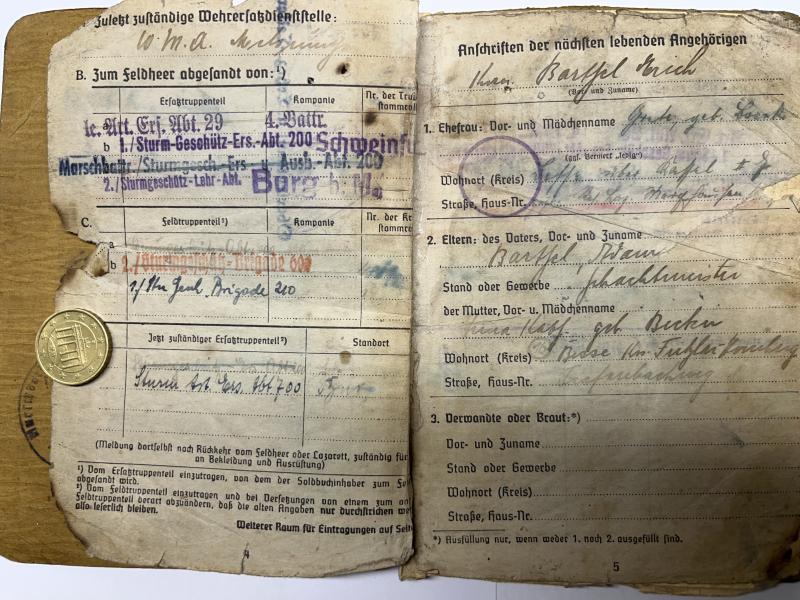 Zuletzt zuständige Wehrersatzdienststelle:
W. M. A. Melsung
B. Zum Feldheer abgesandt von:¹)
Ersatztruppenteil
Kompanie
Nr. der Tru
stammroll
le. Art. Ers. Abt. 29 4. Battr.
b 1./Sturm-Geschütz-Ers.-Abt. 200 Schweinfu
Marschbattr./Sturmgesch.-Ers.- u. Ausb.-Abt. 200
2./Sturmgeschütz-Lehr-Abt. Burg b. M.
C.
Feldtruppenteil²)
Kompanie
Nr. der Kr
stammroll
a
b 2./Sturmgeschütz-Brigade 600
Brigade 210
Jetzt zuständiger Ersatztruppenteil²)
Standort
Sturm Art. Ers. Abt 700
(Meldung dortselbst nach Rückkehr vom Feldheer oder Lazarett, zuständig für
an Bekleidung und Ausrüstung)
¹) Vom Ersatztruppenteil einzutragen, von dem der Soldbuchinhaber zum Fel
abgesandt wird.
²) Vom Feldtruppenteil einzutragen und bei Versetzungen von einem zum an
Feldtruppenteil derart abzuändern, daß die alten Angaben nur durchstrichen we
also leserlich bleiben.
Weiterer Raum für Eintragungen auf Seite
4
Anschriften der nächsten lebenden Angehörigen
Barthel Erich
(Vor- und Zuname)
1. Ehefrau: Vor- und Mädchenname geb.
(ggf. Vermerk „ledig“)
Wohnort (Kreis) Kassel
Straße, Haus-Nr.
2. Eltern: des Vaters, Vor- und Zuname
Barthel, Adam
Stand oder Gewerbe Schachtmeister
der Mutter, Vor- u. Mädchenname
geb.
Wohnort (Kreis)
Straße, Haus-Nr.
3. Verwandte oder Braut:*)
Vor- und Zuname
Stand oder Gewerbe
Wohnort (Kreis)
Straße, Haus-Nr.
*) Ausfüllung nur, wenn weder 1. noch 2. ausgefüllt sind.
5